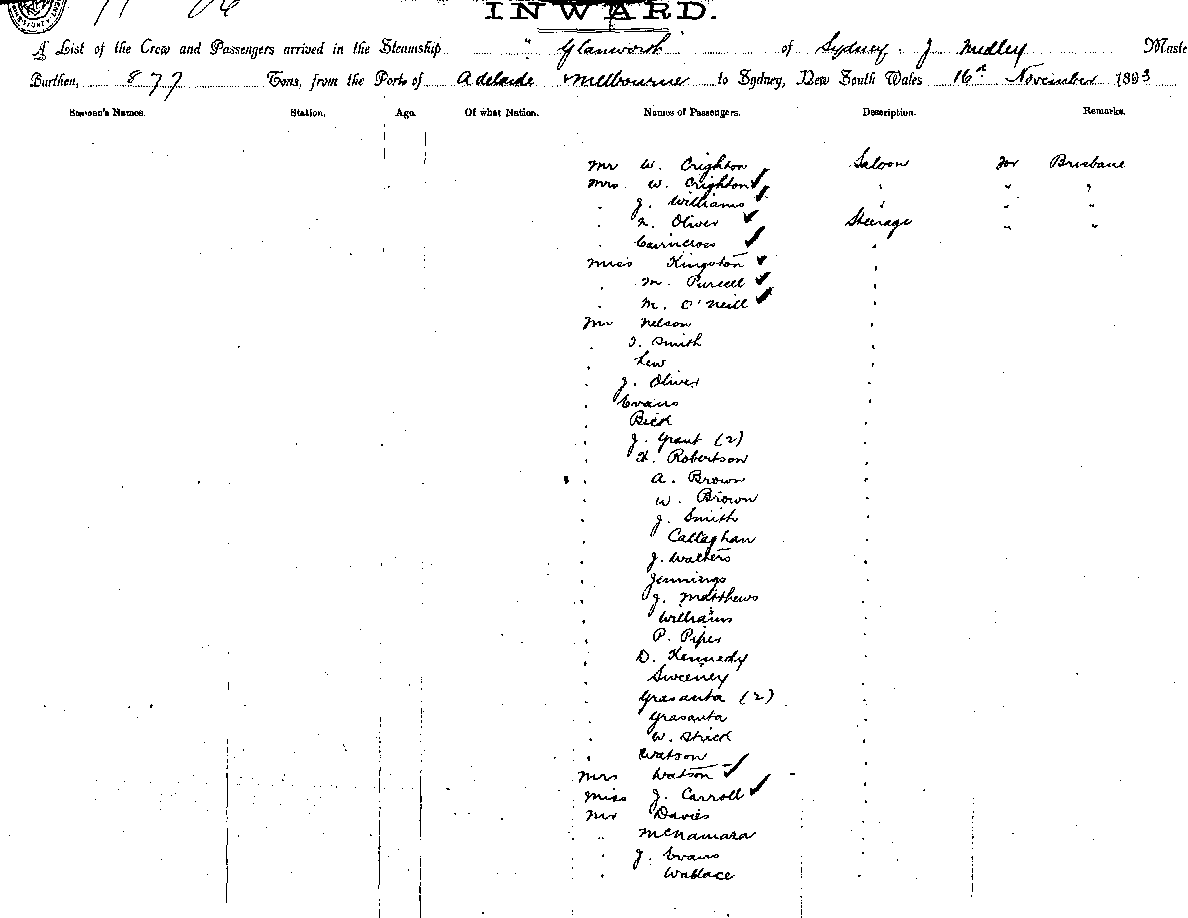 INWARD.
A List of the Crew and Passengers arrived in the Steamship "Glanworth" of Sydney. J Medley Maste
Burthen, 877 Tons, from the Ports of Adelaide & Melbourne to Sydney, New South Wales 16th November 1893
Seaman's Names. Station. Age. Of what Nation. Names of Passengers. Description. Remarks.
Mr W. Crighton Saloon for Brisbane
Mrs W. Crighton " " "
" J. Williams " " "
" Oliver Steerage " "
" Cairncross "
Miss Kingston "
" M. Purcell "
" M. O'Neill "
Mr Nelson "
" Smith "
" Lew "
" J. Oliver "
" Evans "
" Bick "
" J. Grant (2) "
" H. Robertson "
" A. Brown "
" W. Brown "
" J. Smith "
" Callaghan "
" J. Walters "
" Jennings "
" J. Matthews "
" Williams "
" P. Piper "
" D. Kennedy "
" Sweeney "
" Grasanta (2) "
" Grasanta "
" W. Strick "
" Watson "
Mrs Watson "
Miss J. Carroll "
Mr Davies "
" McNamara "
" J. Evans "
" Wallace "